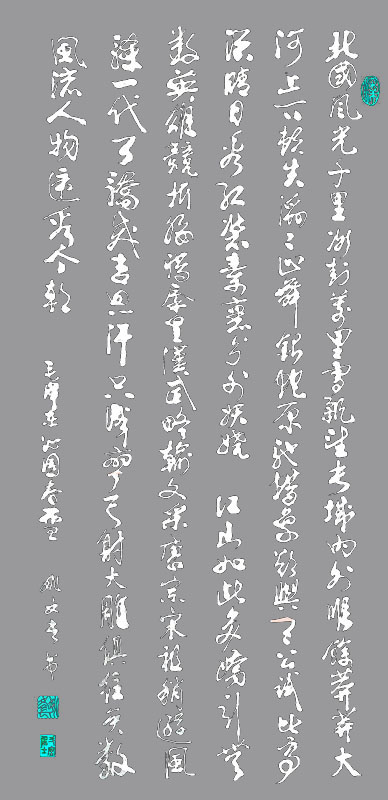 北國風光千里冰封萬里雪飄望長城內外惟餘莽莽大
河上下頓失滔々山舞銀蛇原馳蠟象欲與天公試比高
須晴日看紅裝素裹分外妖嬈 江山如此多嬌引無
數英雄競折腰惜秦皇漢武略輸文采唐宗宋祖稍遜風
騷一代天驕成吉思汗只識彎弓射大雕俱往矣數
風流人物還看今朝
毛澤東沁園春雪